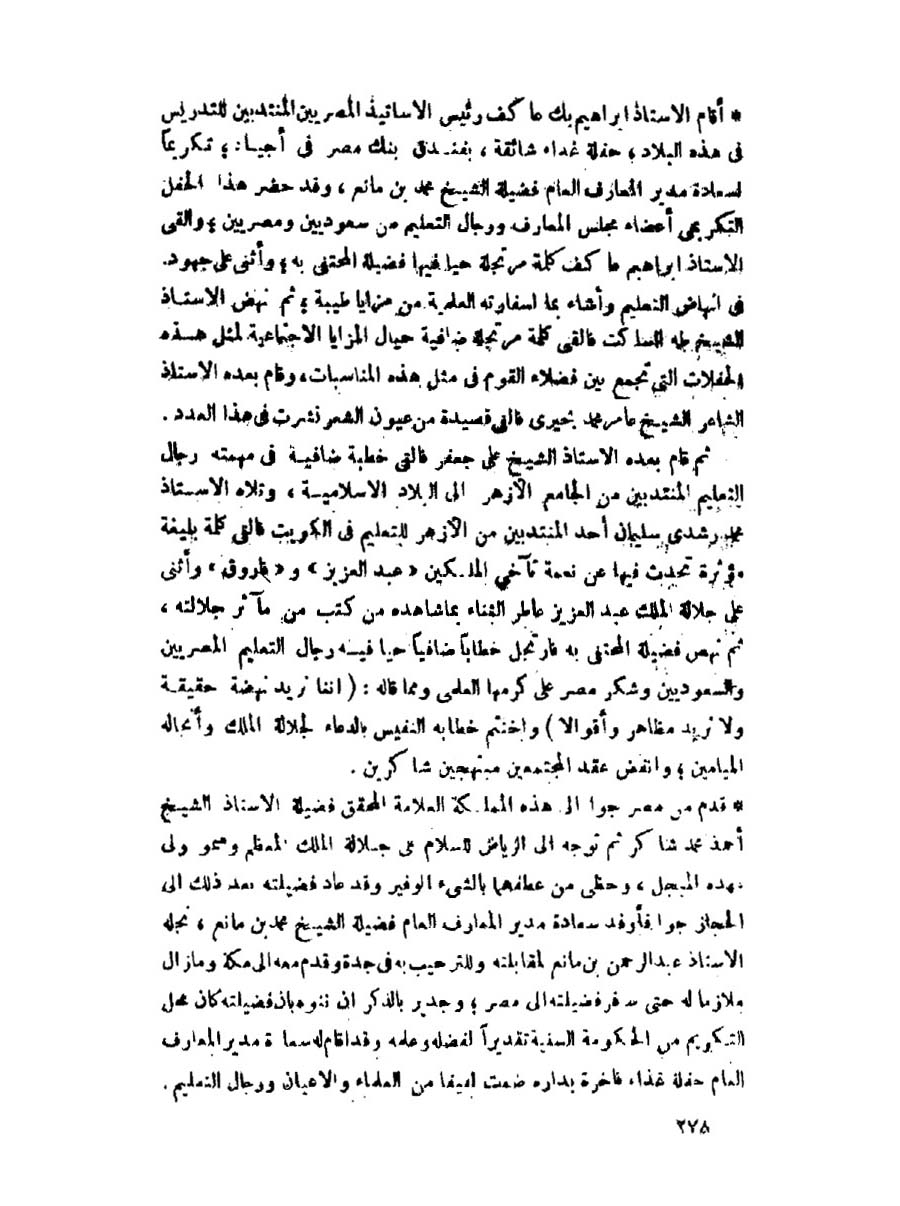 * أقام الاستاذ ابراهيم بك عاكف رئيس الاساتيذ المصريين المنتدبين للتدريس
فى هذه البلاد ، حفلة غداء شائقة ، بفندق بنك مصر فى أجياد ، تكريماً
لسعادة مدير المعارف العام فضيلة الشيخ محمد بن مانع ، وقد حضر هذا الحفل
التكريمى أعضاء مجلس المعارف ورجال التعليم من سعوديين ومصريين ، والقى
الاستاذ ابراهيم عاكف كلمة مرتجلة حيا فيها فضيلة المحتفى به ، وأثنى على جهوده
فى انهاض التعليم وأشاد بما لسفارته العلمية من مزايا طيبة ، ثم نهض الاستاذ
الشيخ طه الساكت فالقى كلمة مرتجلة ضافية حيال المزايا الاجتماعية لمثل هذه
الحفلات التى تجمع بين فضلاء القوم فى مثل هذه المناسبات ، وقام بعده الاستاذ
الشاعر الشيخ عامر محمد بحيرى فالقى قصيدة من عيون الشعر نشرت فى هذا العدد .
ثم قام بعده الاستاذ الشيخ على جعفر فالقى خطبة ضافية فى مهمته رجال
التعليم المنتدبين من الجامع الازهر الى البلاد الاسلامية ، وتلاه الاستاذ
محمد رشدى سليمان أحد المنتدبين من الأزهر للتعليم فى الكويت فالقى كلمة بليغة
مؤثرة تحدث فيها عن نعمة تآخي الملكين « عبد العزيز » و « فاروق » وأثنى
على جلالة الملك عبد العزيز عاطر الثناء بما شاهده من كتب من مآثر جلالته ،
ثم نهض فضيلة المحتفى به فارتجل خطاباً ضافياً حيا فيه رجال التعليم المصريين
والسعوديين وشكر مصر على كرمها العلمى ومما قاله : ( اننا نريد نهضة حقيقة
ولا نريد مظاهر وأقوالا ) واختتم خطابه النفيس بالدعاء لجلالة الملك وأنجاله
الميامين ، وانفض عقد المجتمعين مبتهجين شاكرين .
* قدم من مصر جوا الى هذه المملكة العلامة المحقق فضيلة الاستاذ الشيخ
أحمد محمد شاكر ثم توجه الى الرياض للسلام على جلالة الملك المعظم وسمو ولى
عهده المبجل ، وحظى من عطفهما بالشىء الوفير وقد عاد فضيلته بعد ذلك الى
الحجاز جوا فأوفد سعادة مدير المعارف العام فضيلة الشيخ محمد بن مانع ، نجله
الاستاذ عبدالرحمن بن مانع لمقابلته وللترحيب به فى جدة وقدم معه الى مكة وما زال
ملازما له حتى سفر فضيلته الى مصر ، وجدير بالذكر ان ننوه بان فضيلته كان محل
التكريم من الحكومة السنية تقديراً لفضله وعلمه وقد اقام له سعادة مدير المعارف
العام حفلة غذاء فاخرة بداره ضمت لفيفا من العلماء والاعيان ورجال التعليم .
٢٧٨